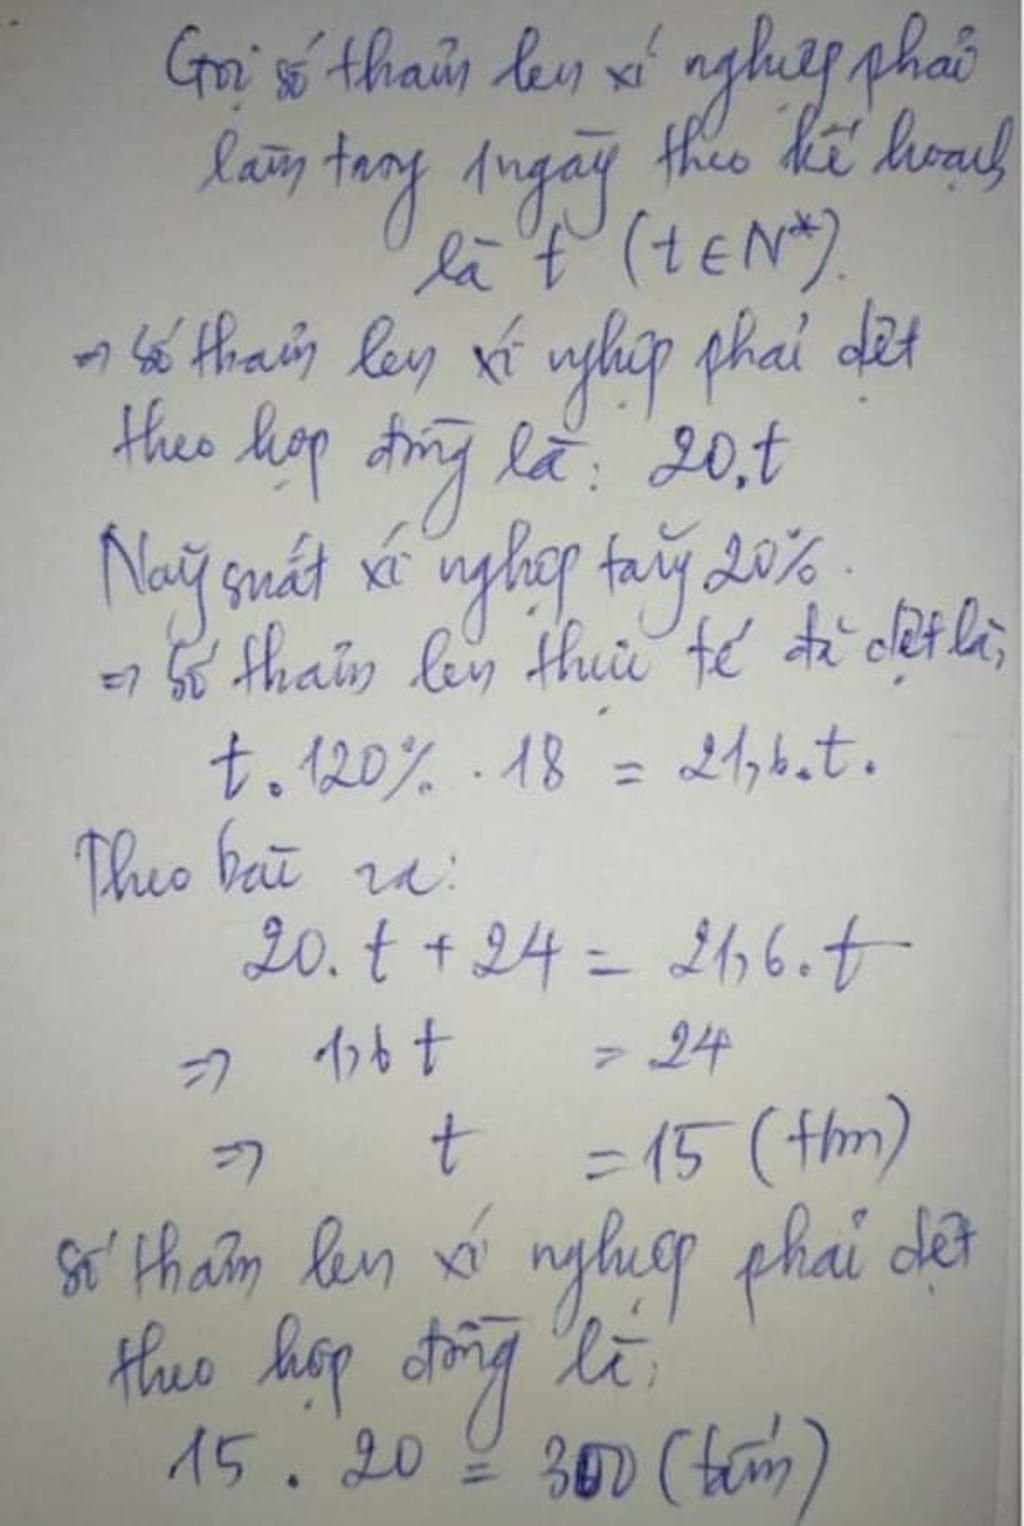 Gọi số thảm len xí nghiệp phải
làm trong 1 ngày theo kế hoạch
là t (t ∈ N*).
⇒ số thảm len xí nghiệp phải dệt
theo hợp đồng là: 20.t
Năng suất xí nghiệp tăng 20%.
⇒ Số thảm len thực tế đã dệt là,
t. 120% . 18 = 21,6.t.
Theo bài ra:
20. t + 24 = 21,6. t
⇒ 1,6 t = 24
⇒ t = 15 (thm)
Số thảm len xí nghiệp phải dệt
theo hợp đồng là:
15 . 20 = 300 (tấm)